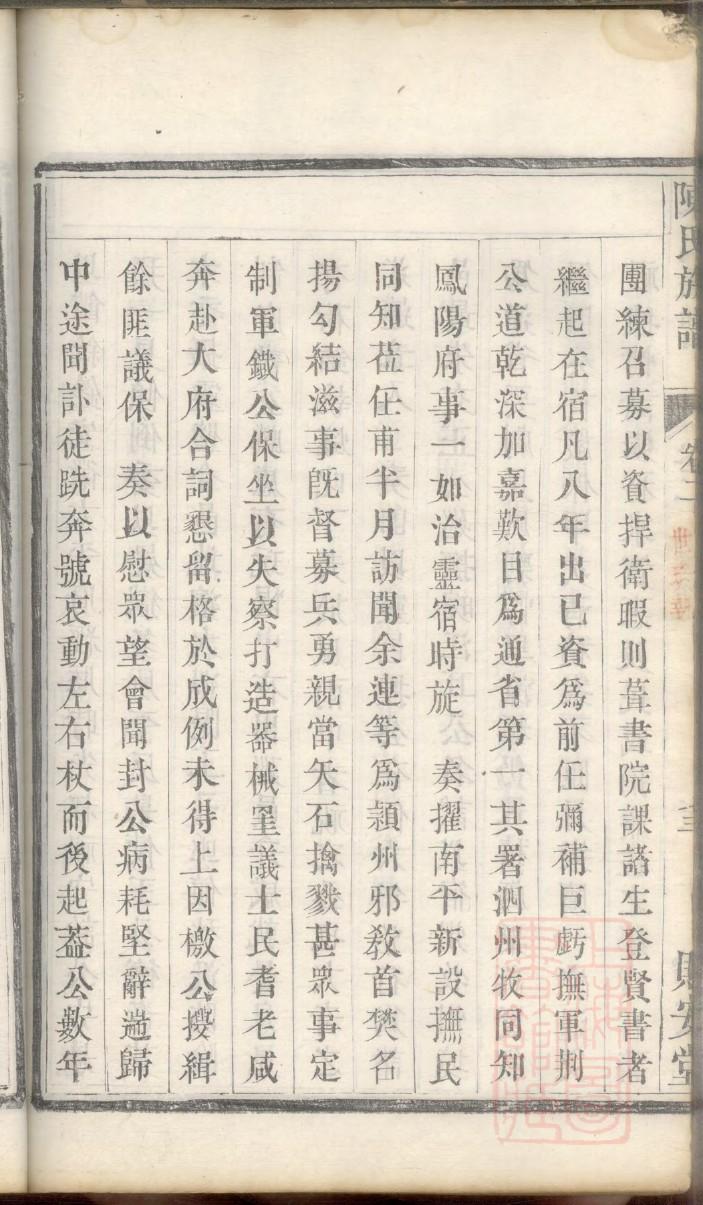 陳氏族譜
卷二
團練召募以資捍衛暇則葺書院課諸生登賢書者
繼起在宿凡八年出已資爲前任彌補巨虧撫軍荆
公道乾深加嘉歎目爲通省第一其署泗州牧同知
鳳陽府事一如治靈宿時旋 奏擢南平新設撫民
同知莅任甫半月訪聞余連等爲潁州邪敎首樊名
揚勾結滋事旣督募兵勇親當矢石擒戮甚眾事定
制軍鐵公保坐以失察打造器械罣議士民耆老咸
奔赴大府合詞懇留格於成例未得上因檄公搜緝
餘匪議保 奏以慰眾望會聞封公病耗堅辭遄歸
中途聞訃徒跣奔號哀動左右杖而後起葢公數年